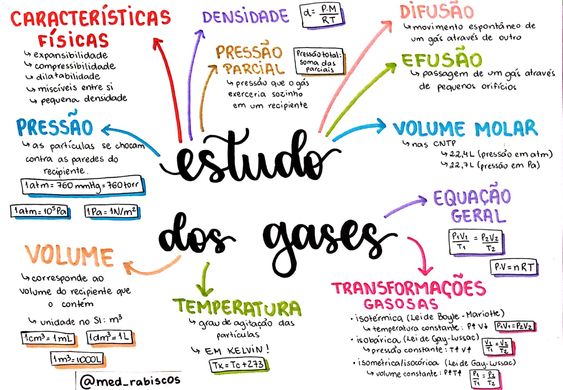 CARACTERÍSTICAS
FÍSICAS
↳ expansibilidade
↳ compressibilidade
↳ dilatabilidade
↳ miscíveis entre si
↳ pequena densidade
DENSIDADE
d = P.M
RT
PRESSÃO
PARCIAL
Pressão total:
soma das
parciais
↳ pressão que o gás
exerceria sozinho
em um recipiente
DIFUSÃO
↳ movimento espontâneo de
um gás através de outro
EFUSÃO
↳ passagem de um gás através
de pequenos orifícios
PRESSÃO
↳ as partículas se chocam
contra as paredes do
recipiente.
1atm = 760 mmHg = 760torr
1atm = 10⁵Pa
1Pa = 1N/m²
VOLUME MOLAR
↳ nas CNTP
↳ 22,4L (pressão em atm)
↳ 22,7L (pressão em Pa)
estudo
dos gases
EQUAÇÃO
GERAL
P₁V₁ = P₂V₂
T₁ T₂
P.V = nRT
VOLUME
↳ corresponde ao
volume do recipiente que
o contém
↳ unidade no SI: m³
1cm³ = 1mL
1dm³ = 1L
1m³ = 1000L
TEMPERATURA
↳ grau de agitação das
partículas
↳ EM KELVIN!
TK = TC + 273
TRANSFORMAÇÕES
GASOSAS
• isotérmica (Lei de Boyle - Mariotte)
↳ temperatura constante: P↑ V↓ P₁V₁ = P₂V₂
• isobárica (Lei de Gay-Lussac)
↳ pressão constante: T↑ V↑ V₁ = V₂
T₁ T₂
• isométrica/isocórica (Lei de Gay-Lussac)
↳ volume constante: P↑ T↑ P₁ = P₂
T₁ T₂
@med_rabiscos